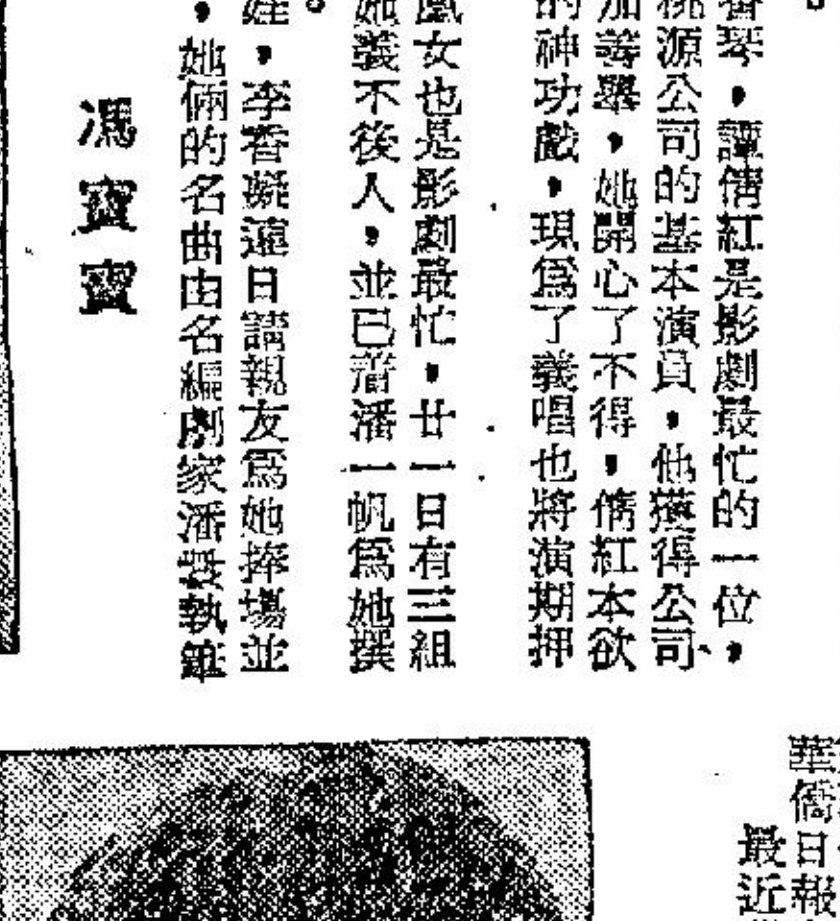 香琴，譚倩紅是影劇最忙的一位，
桃源公司的基本演員，他獲得公司
加善舉，她開心了不得，倩紅本欲
的神功戲，現爲了義唱也將演期押
鳳女也是影劇最忙，廿一日有三組
她義不後人，並已請潘一帆爲她撰
娃，李香嬈連日請親友爲她捧塲並
，她倆的名曲由名編劇家潘 執
馮寶寶
華僑日報
最近